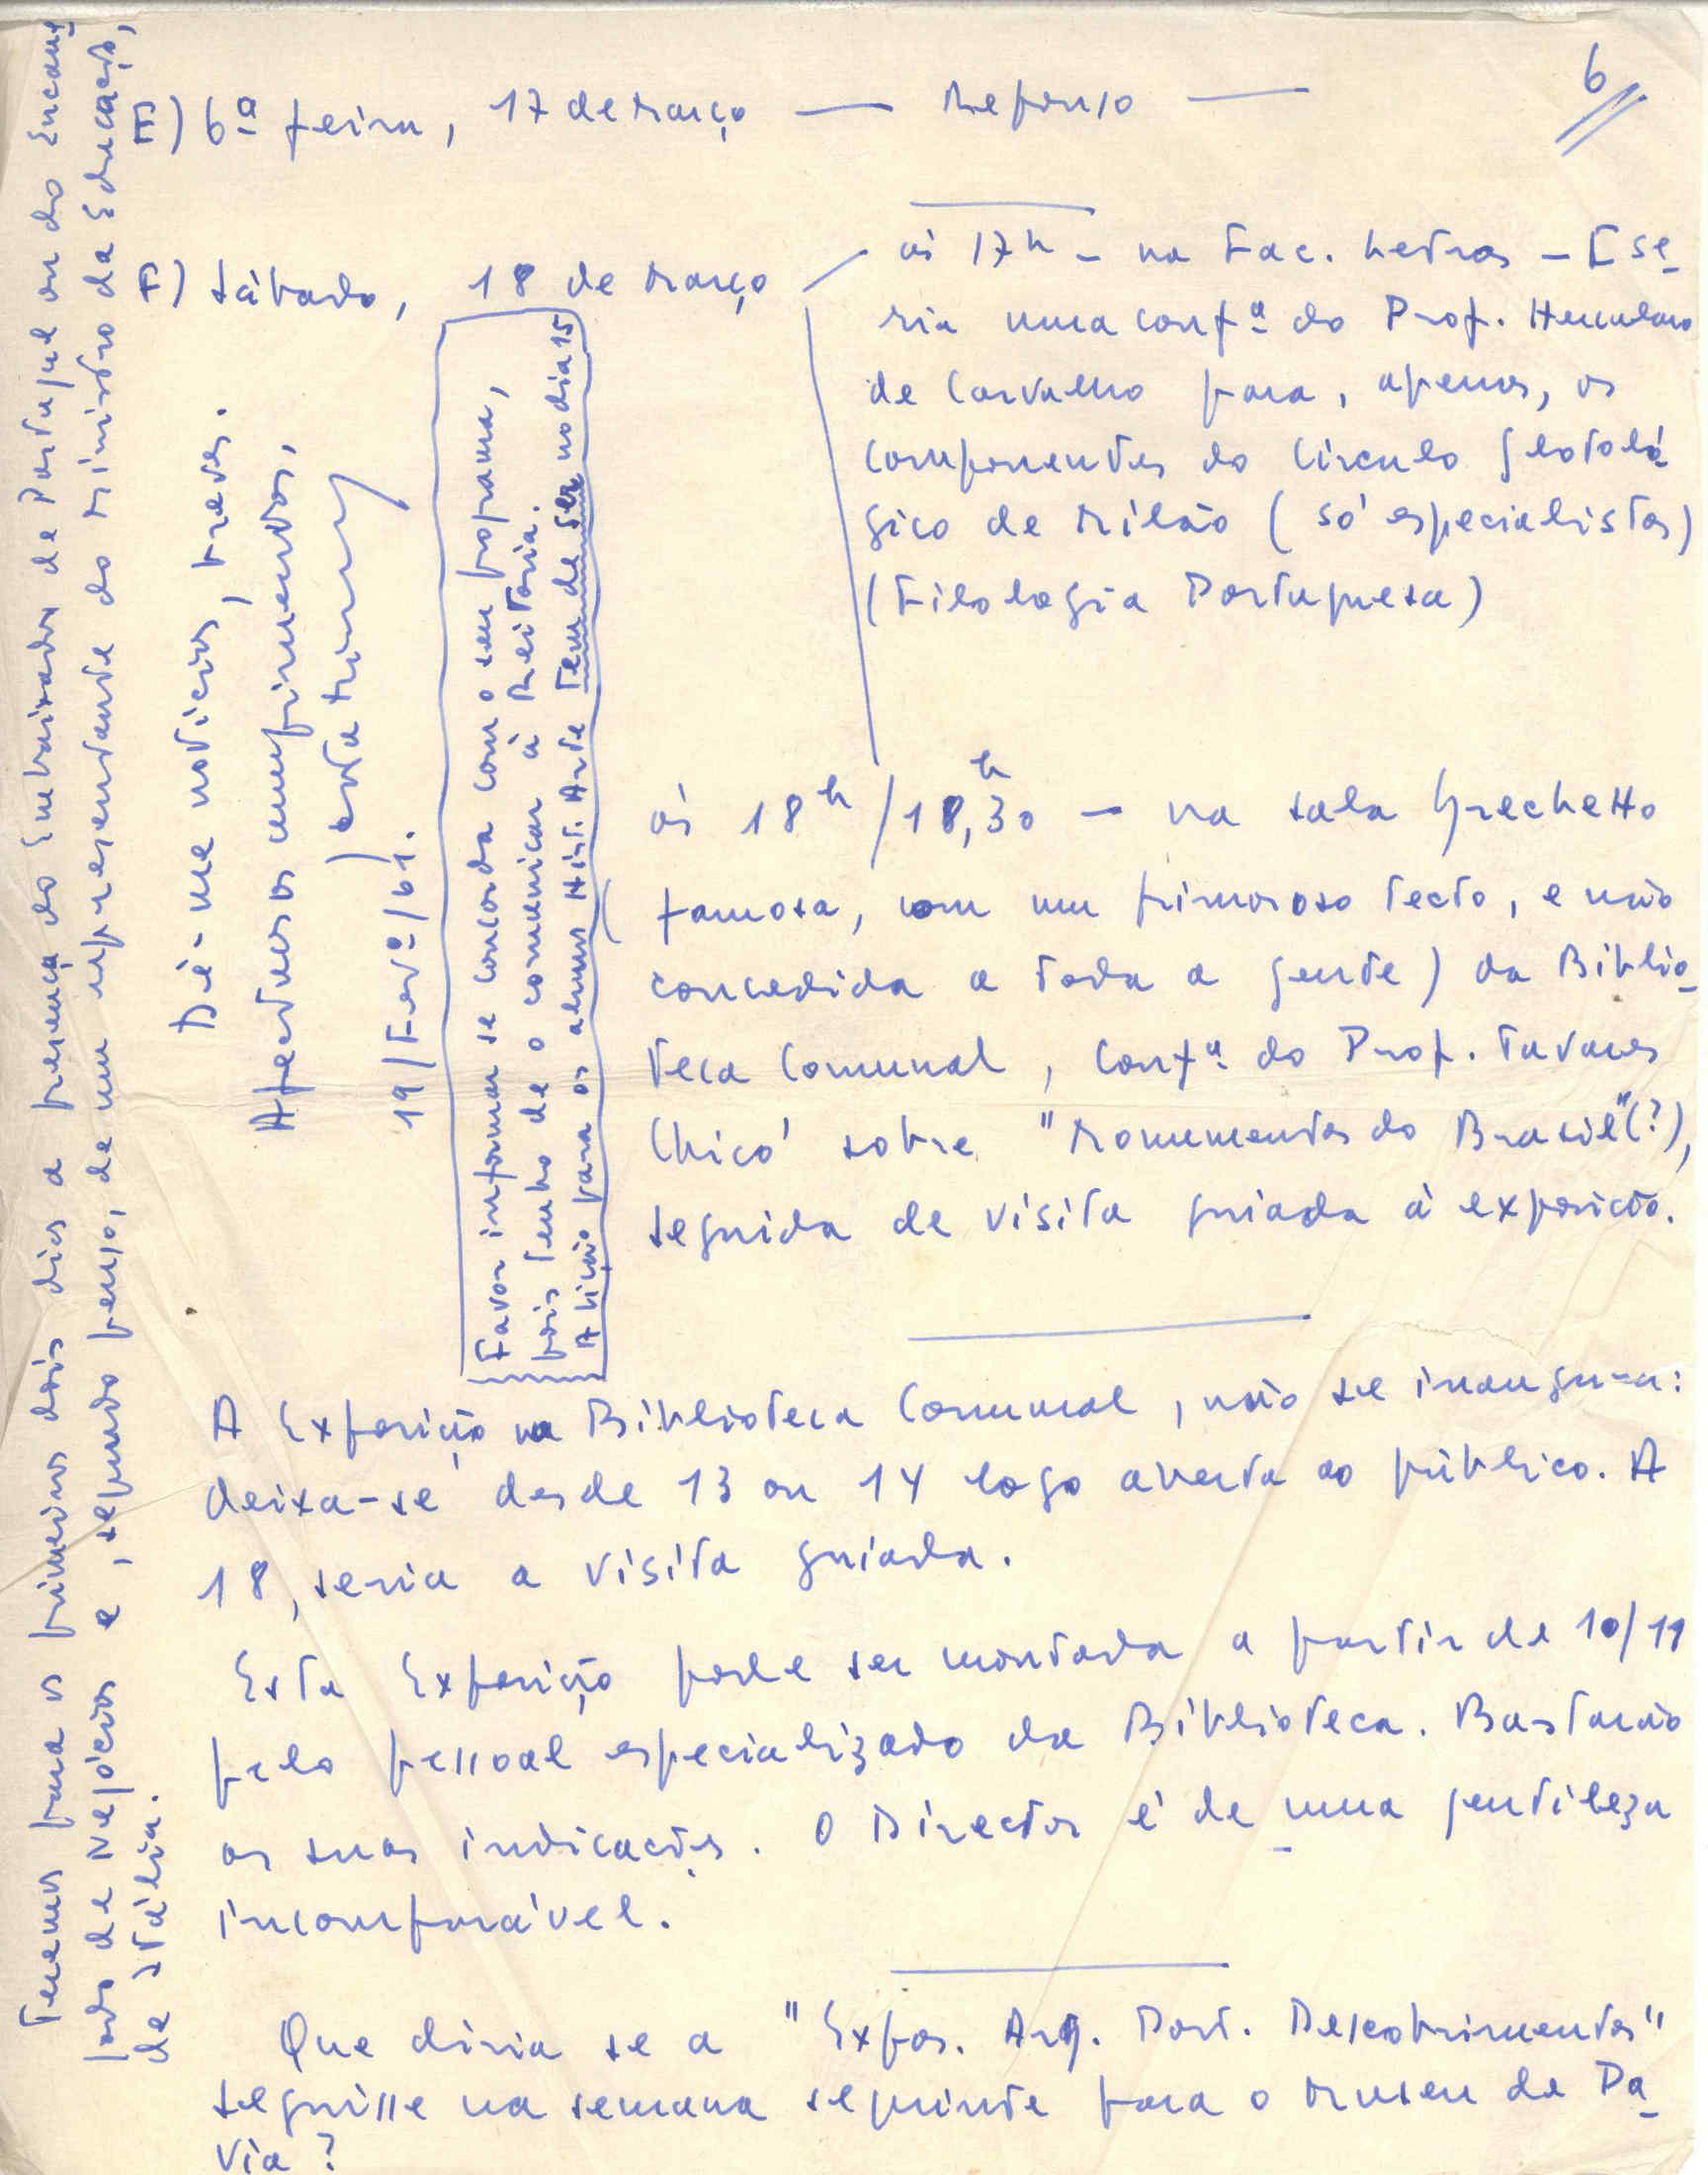 6
E) 6ª feira, 17 de Março — Repouso —
F) Sábado, 18 de Março
às 17h - na Fac. Letras - [Se-
ria uma confª do Prof. Herculano
de Carvalho para, apenas, os
componentes do Circulo glotoló-
gico de Milão (só especialistas)
(Filologia Portuguesa)
às 18h/18,30h - na sala Grechetto
(famosa, com um primoroso tecto, e não
concedida a toda a gente) da Biblio-
teca Comunal, confª do Prof. Tavares
Chicó sobre "Monumentos do Brasil"(?),
seguida de visita guiada à exposição.
A Exposição na Biblioteca Comunal, não se inaugura:
deixa-se desde 13 ou 14 logo aberta ao público. A
18, seria a visita guiada.
Esta Exposição pode ser montada a partir de 10/11
pelo pessoal especializado da Biblioteca. Bastarão
as suas indicações. O Director é de uma gentileza
incomparável.
Que diria se a "Expos. Arq. Port. Descobrimentos"
seguisse na semana seguinte para o Museu de Pa-
via?
Favor informar se concorda com o seu programa,
pois tenho de o comunicar à Reitoria.
A lição para os alunos Hist. Arte tem de ser no dia 15
Dê-me notícias, breves.
Afectuosos cumprimentos,
19/Fevº/61.
Teremos para os primeiros dois dias a presença do Embaixador de Portugal ou do Encarre-
gado de Negócios e, segundo penso, de um representante do Ministro da Educação,
de Itália.